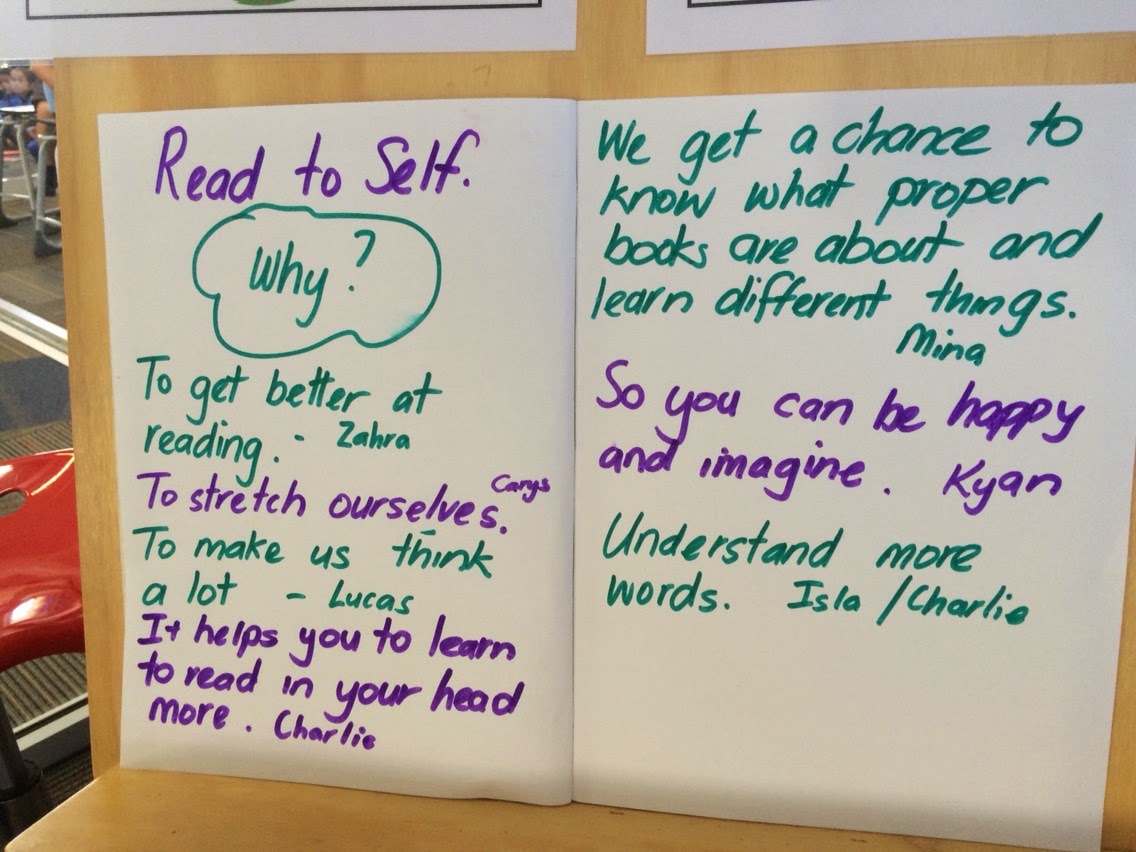 Read to Self.
Why?
To get better at
reading. - Zahra
To stretch ourselves. Carys
To make us think
a lot - Lucas
It helps you to learn
to read in your head
more. Charlie
We get a chance to
know what proper
books are about and
learn different things.
Mina
So you can be happy
and imagine. Kyan
Understand more
words. Isla / Charlie